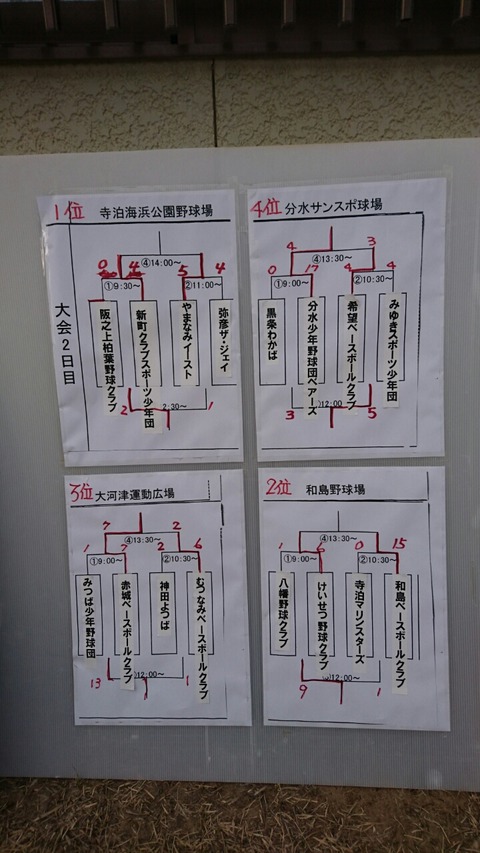 大会2日目
1位 寺泊海浜公園野球場
④14:00～
0 5 4
①9:30～ ②11:00～
阪之上柏葉野球クラブ
新町クラブスポーツ少年団
やまなみイースト
弥彦ザ・ジェイ
2 2:30～ 1
4位 分水サンスポ球場
4 3
④13:30～
0 17 4 4
①9:00～ ②10:30～
黒条わかば
分水少年野球団ベアーズ
希望ベースボールクラブ
みゆきスポーツ少年団
3 12:00 5
3位 大河津運動広場
7 2
④13:30～
1 7 2 6
①9:00～ ②10:30～
みつば少年野球団
赤城ベースボールクラブ
神田よつば
むつなみベースボールクラブ
13 12:00～ 1
2位 和島野球場
④13:30～
1 6 0 15
①9:00～ ②10:30～
八幡野球クラブ
けいせつ野球クラブ
寺泊マリンスターズ
和島ベースボールクラブ
9 12:00～ 1